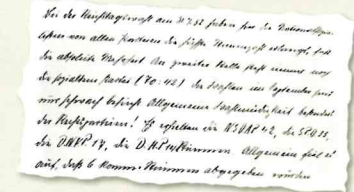 Bei der Reichstagswahl am 31.7.32 haben hier die Nationalsozia-
listen von allen Parteien die höchste Stimmenzahl erlangt, fast
die absolute Mehrheit. An zweiter Stelle steht immer noch
die sozialdem. Partei (70:42). Die Wahlen im September sind
nur schwach besucht. Allgemeine
der Reichsparteien! Es erhielten die NSDAP 42, die SPD 35,
die DNVP 17, die D.V.P. Stimmen. Allgemein fiel es
auf, daß 6 komm. Stimmen abgegeben wurden